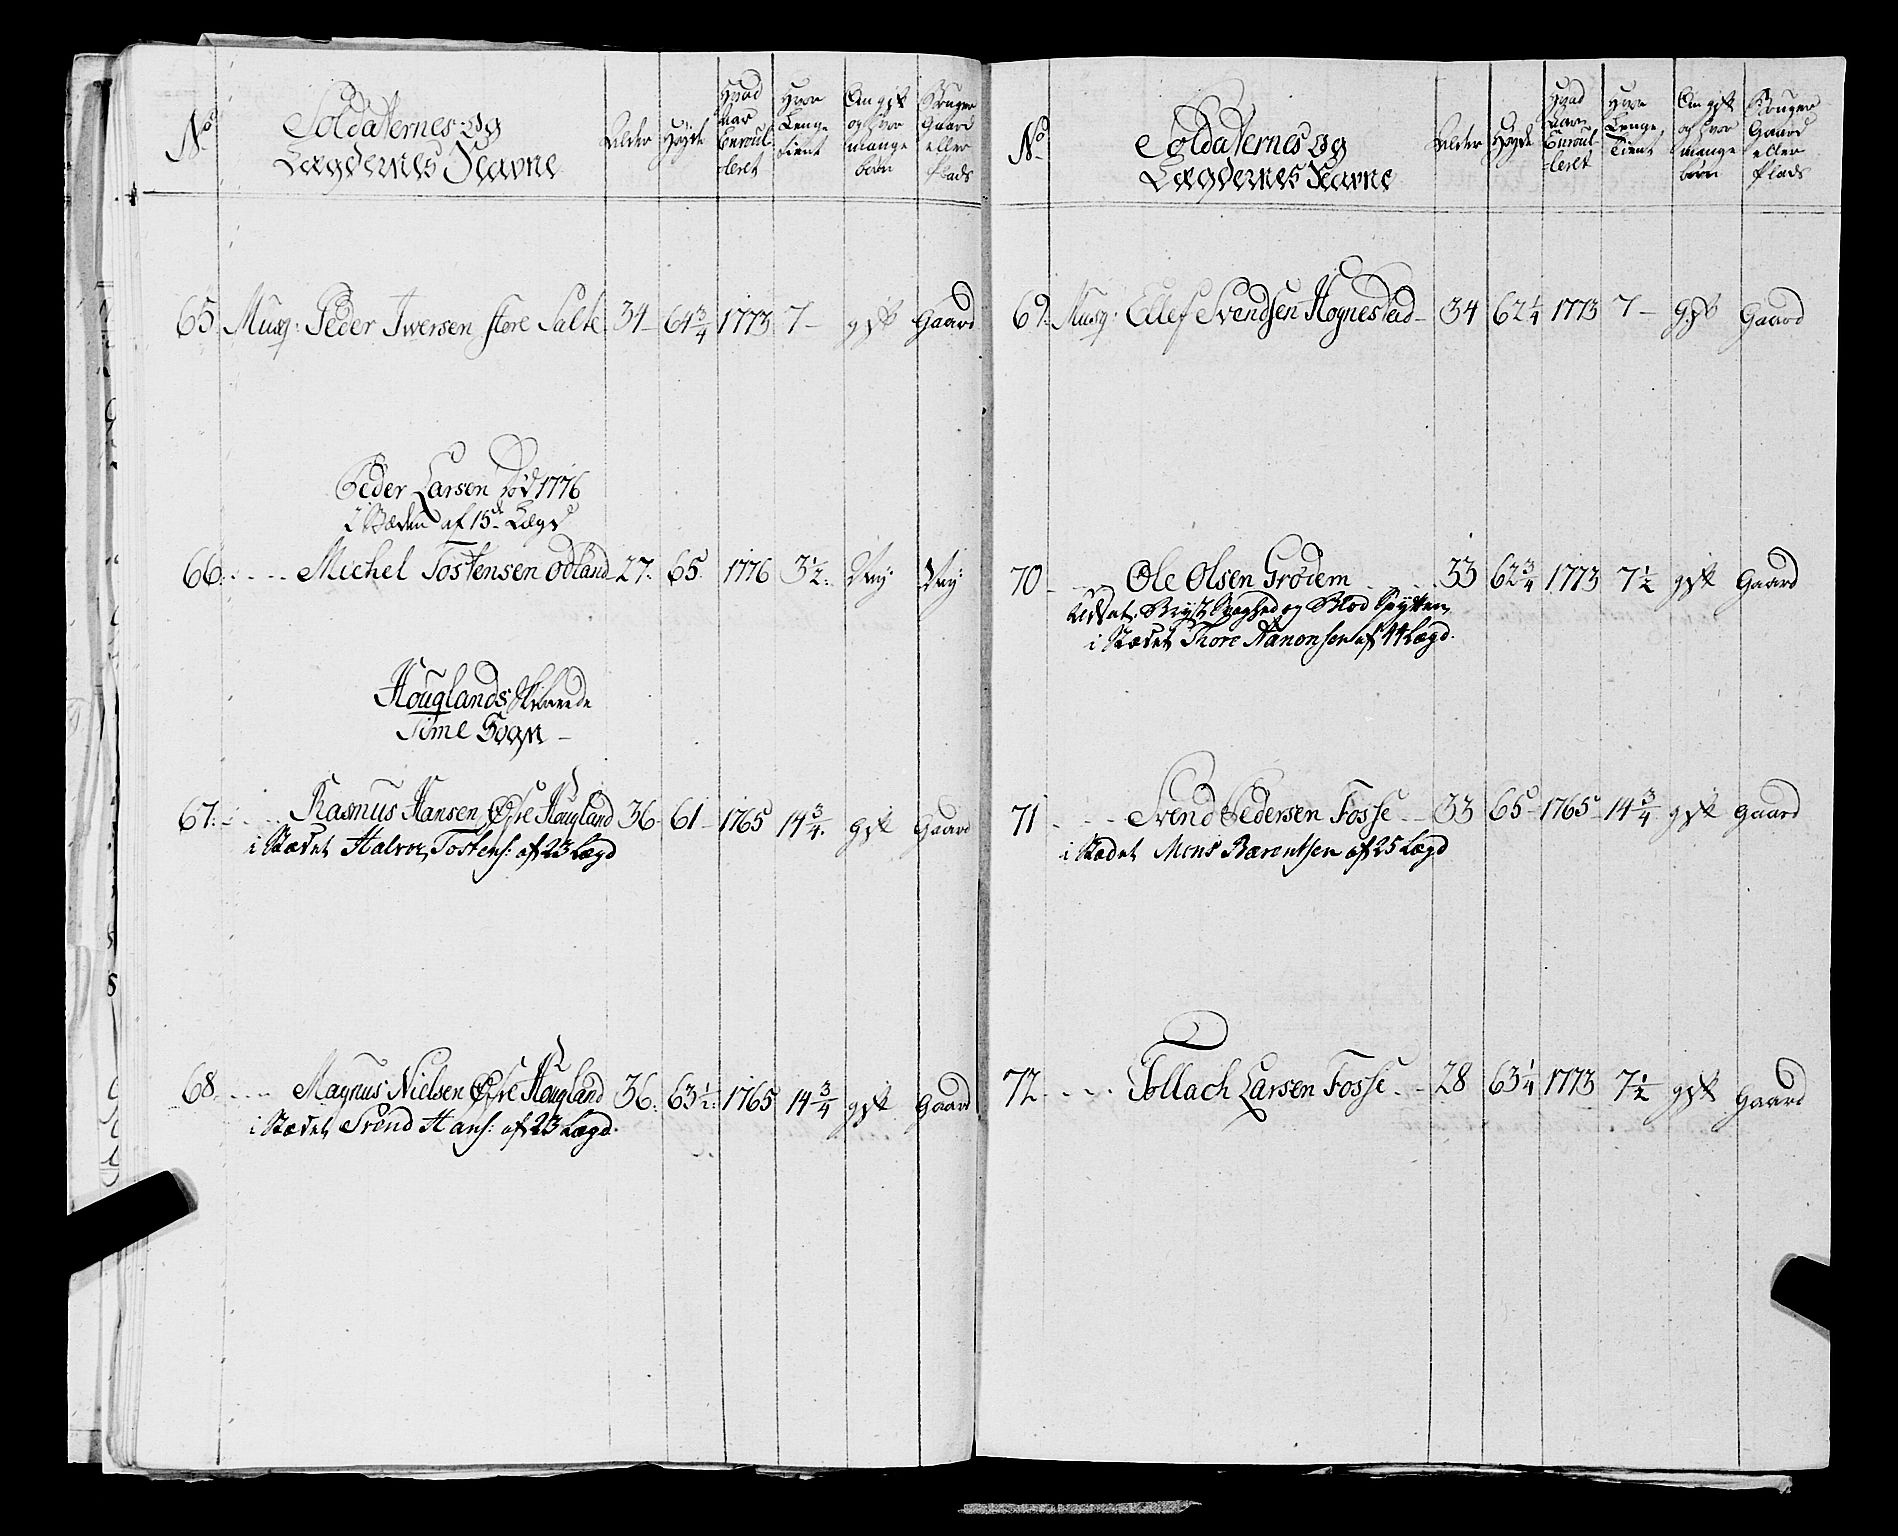 No
Soldaternes og
Lægdernes Navne
Alder
Høyde
Hvad
Aar
Enroul-
leret
Hvor
Lenge
tient
Om gift
og hvor
mange
børn
Bruger
Gaard
eller
Plads
65 Musq: Peder Iwersen store Salte 34 64 3/4 1773 7 - gift Gaard
Peder Larsen død 1776
i Stæden af 15de Lægd
66. Michel Tostensen Odland 27. 65. 1776 3 1/2. Ney Ney
Houglands Skibrede
Time Sogn -
67. Rasmus Hansen Øfre Hougland 36. 61 - 1765 14 3/4. gift Gaard
i Stædet Halvor Tostens: af 23 Lægd
68. Magnus Nielsen Øfre Hougland 36. 63 1/2. 1765 14 3/4 gift Gaard
i Stædet Svend Hans: af 23 Lægd.
No
Soldaternes og
Lægdernes Navne
Alder
Høyde
Hvad
Aar
Enroul-
leret
Hvor
Lenge
tient
Om gift
og hvor
mange
børn
Bruger
Gaard
eller
Plads
69. Musq: Ellef Svendsen Hognestad - 34 62 1/4 1773 7 - Gift Gaard
70 Ole Olsen Grødem 33 62 3/4 1773 7 1/2 gift Gaard
Udsat: Bryst Svaghed og Blod Spytten,
i Stædet Thore Aanonsen af 44 Lægd.
71 Svend Pedersen Fosse 33 65 - 1765 - 14 3/4 gift Gaard
i Stædet Mons Barentsen af 25 Lægd
72. Tollach Larsen Fosse - 28 63 1/4 1773 7 1/2 gift Gaard